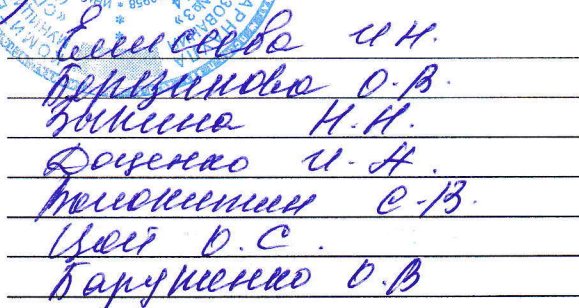 Елисеева И Н.
Березикова О.В.
Зыкина Н.Н.
Доценко И.А.
Волокитин С.В.
Цой О.С.
Барушенко О.В